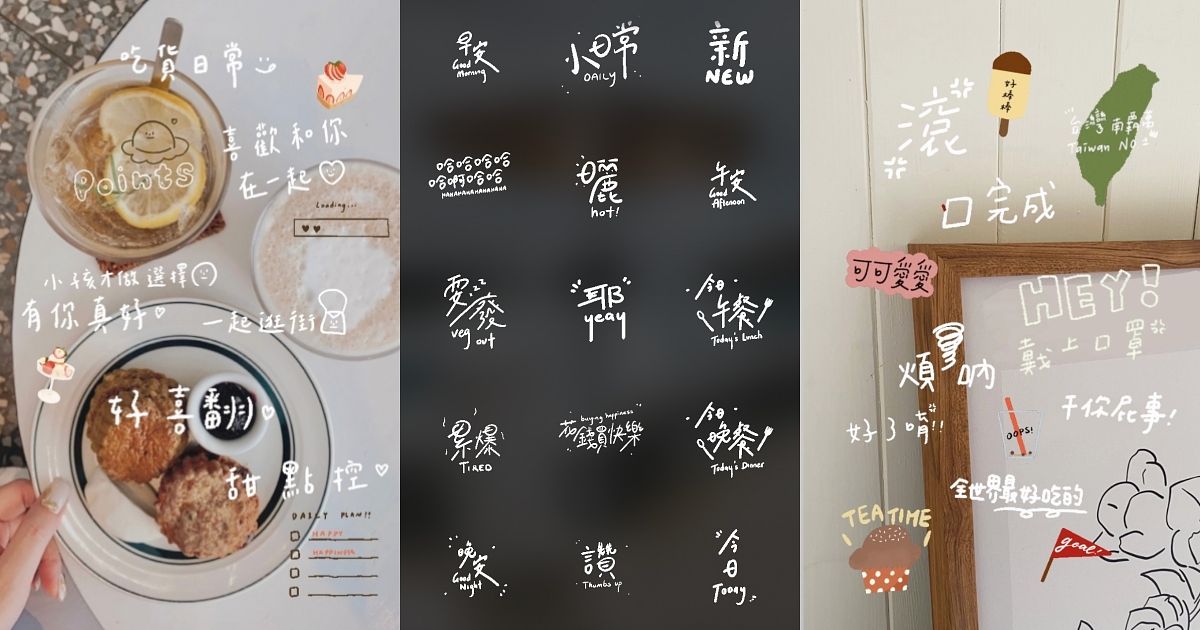 吃貨日常
喜歡和你
在一起
Points
Loading...
小孩才做選擇
有你真好
一起逛街
好喜翻
甜點控
DAILY PLAN!!
HAPPY
HAPPINESS
早安
Good
Morning
小日常
DAILY
新
NEW
哈哈哈哈哈
哈哈啊哈哈哈
HAHAHAHAHAHAHAHA
日麗
hot!
午安
Good
Afternoon
耍廢
veg out
耶
yeay
今日
午餐
Today's Lunch
累爆
TIRED
buying happiness
花錢買快樂
今日
晚餐
Today's Dinner
晚安
Good
Night
讚
Thumbs up
今日
Today
滾
好棒棒
台灣南霸萬
Taiwan NO.1
口完成
可可愛愛
HEY!
戴上口罩
煩吶
好了唷!!
OOPS!
干你屁事!
全世界最好吃的
TEA TIME
goal!